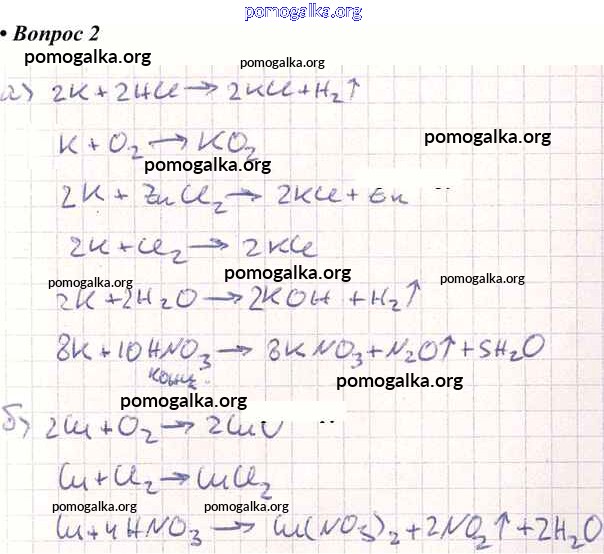 pomogalka.org
• Вопрос 2
pomogalka.org
pomogalka.org
а) 2K + 2HCl → 2KCl + H₂↑
K + O₂ → KO₂
pomogalka.org
pomogalka.org
2K + ZnCl₂ → 2KCl + Zn
2K + Cl₂ → 2KCl
pomogalka.org
pomogalka.org
pomogalka.org
2K + 2H₂O → 2KOH + H₂↑
8K + 10HNO₃ → 8KNO₃ + N₂O↑ + 5H₂O
конц.
pomogalka.org
pomogalka.org
б) 2Cu + O₂ → 2CuO
Cu + Cl₂ → CuCl₂
pomogalka.org
pomogalka.org
Cu + 4HNO₃ → Cu(NO₃)₂ + 2NO₂↑ + 2H₂O